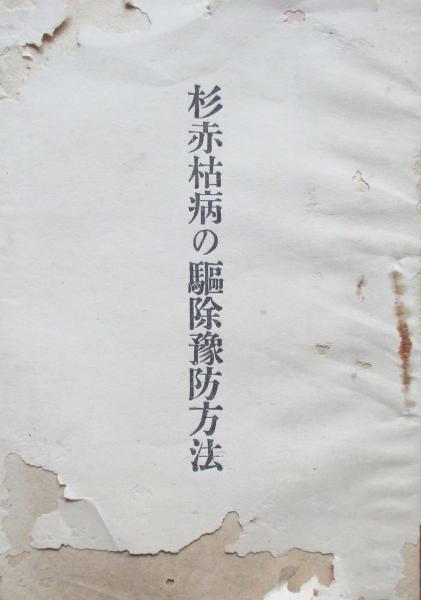 杉赤枯病の驅除豫防方法